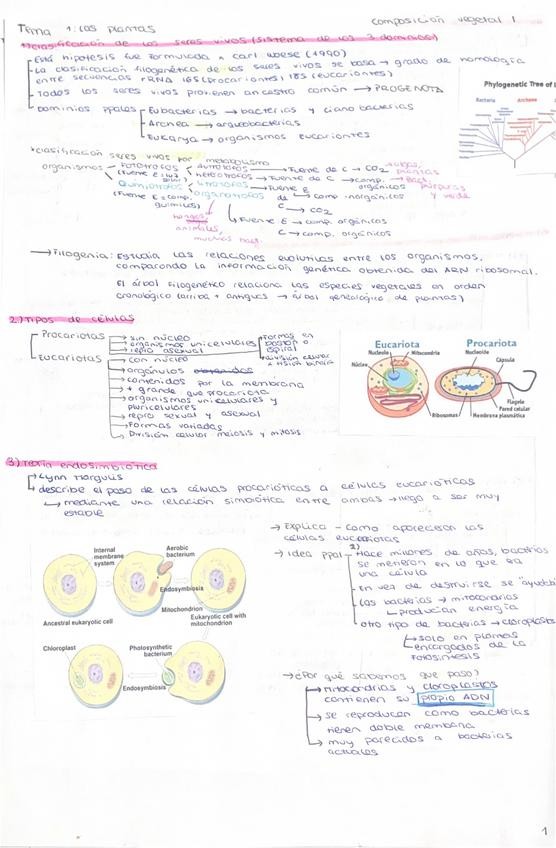 Tema 1: Las plantas
composición vegetal 1
1) Clasificación de los seres vivos (sistema de los 3 dominios)
Esta hipótesis fue formulada x Carl Woese (1990)
La clasificación filogenética de los seres vivos se basa → grado de homología
entre secuencias rRNA 16S (procariontes) 18S (eucariontes)
Todos los seres vivos provienen ancestro común → PROGENOTA
Dominios ppales
Eubacterias → bacterias y ciano bacterias
Archea → arqueobacterias
Eukarya → organismos eucariontes
Phylogenetic Tree of
Bacteria
Archaea
clasificación seres vivos por metabolismo
organismos
Fototrofos
(Fuente E = luz
Autótrofos
→ Fuente de C → CO2
plantas
Heterótrofos
→ Fuente de C → comp.
orgánicos
Bact.
púrpuras
y verde
Quimiotrofos
(Fuente E = comp.
químicos)
Litotrofos
→ Fuente E
de → comp. inorgánicos
C → CO2
Organotrofos
hongos
animales,
muchas bact.
Fuente E → comp. orgánicos
C → comp. orgánicos
→ Filogenia: Estudia las relaciones evolutivas entre los organismos,
comparando la información genética obtenida del ARN ribosomal.
El árbol filogenético relaciona las especies vegetales en orden
cronológico (arriba + antiguas → árbol genealógico de plantas)
2.) Tipos de células
Procariotas
→ sin núcleo
→ organismos unicelulares
→ repro asexual
Formas en
bastón o
espiral
División celular
→ fisión binaria
Eucariotas
→ con núcleo
→ orgánulos
→ contenidos por la membrana
→ + grande que procariota
→ organismos unicelulares y
pluricelulares
→ repro sexual y asexual
→ Formas variadas
→ División celular meiosis y mitosis
Eucariota
Procariota
Nucleolo
Mitochondria
Núcleo
Nucleoide
Cápsula
Ribosomas
Flagelo
Pared celular
Membrana plasmática
3) Teoría endosimbiótica
→ Lynn Margulis
→ describe el paso de las células procarióticas a células eucarióticas
→ mediante una relación simbiótica entre ambas → llegó a ser muy
estable
→ Explica - como aparecieron las
células eucariotas
→ Idea ppal - Hace millones de años, bacterias
se metieron en lo que era
una célula
En vez de destruirse se "ayudaban
Las bacterias → mitocondrias
→ producían energía
otro tipo de bacterias → cloroplastos
→ solo en plantas
encargados de la
fotosíntesis
Internal
membrane
system
Aerobic
bacterium
Endosymbiosis
Mitochondrion
Ancestral eukaryotic cell
Eukaryotic cell with
mitochondrion
Chloroplast
Photosynthetic
bacterium
Endosymbiosis
→ ¿Por qué sabemos que pasó?
→ Mitocondrias y cloroplastos
contienen su propio ADN
→ se reproducen como bacterias
tienen doble membrana
→ muy parecidos a bacterias
actuales
1